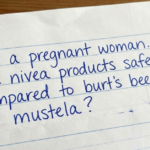 a pregnant woman.
nivea products safe
compared to burt's bee
mustela?